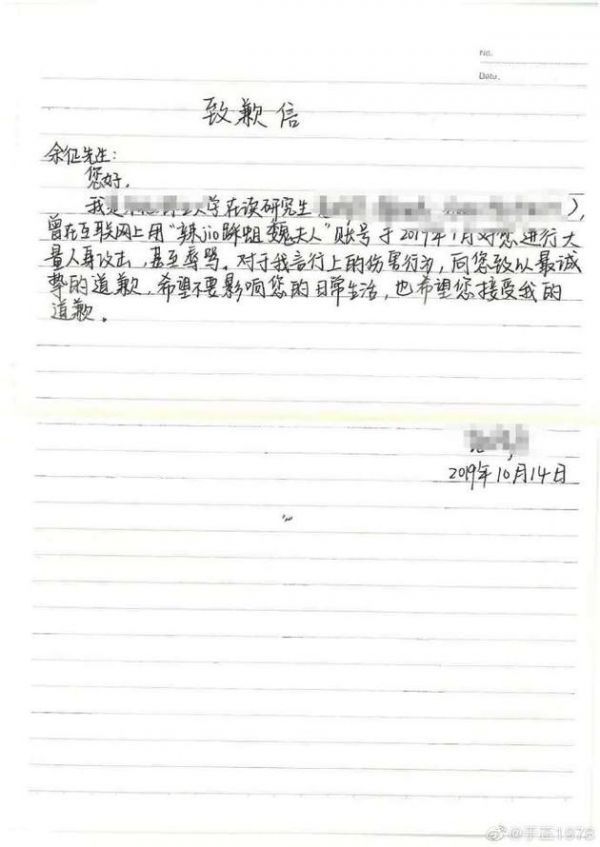 No.
Date.
致歉信
余征先生:
您好,
我是 大学在读研究生 ),
曾在互联网上用"辣jio 蛆魏夫人"账号于2019年1月对您进行大
量人身攻击,甚至辱骂,对于我言行上的伤害行为,向您致以最诚
挚的道歉,希望不要影响您的日常生活,也希望您接受我的
道歉。
2019年10月14日
@于正1978